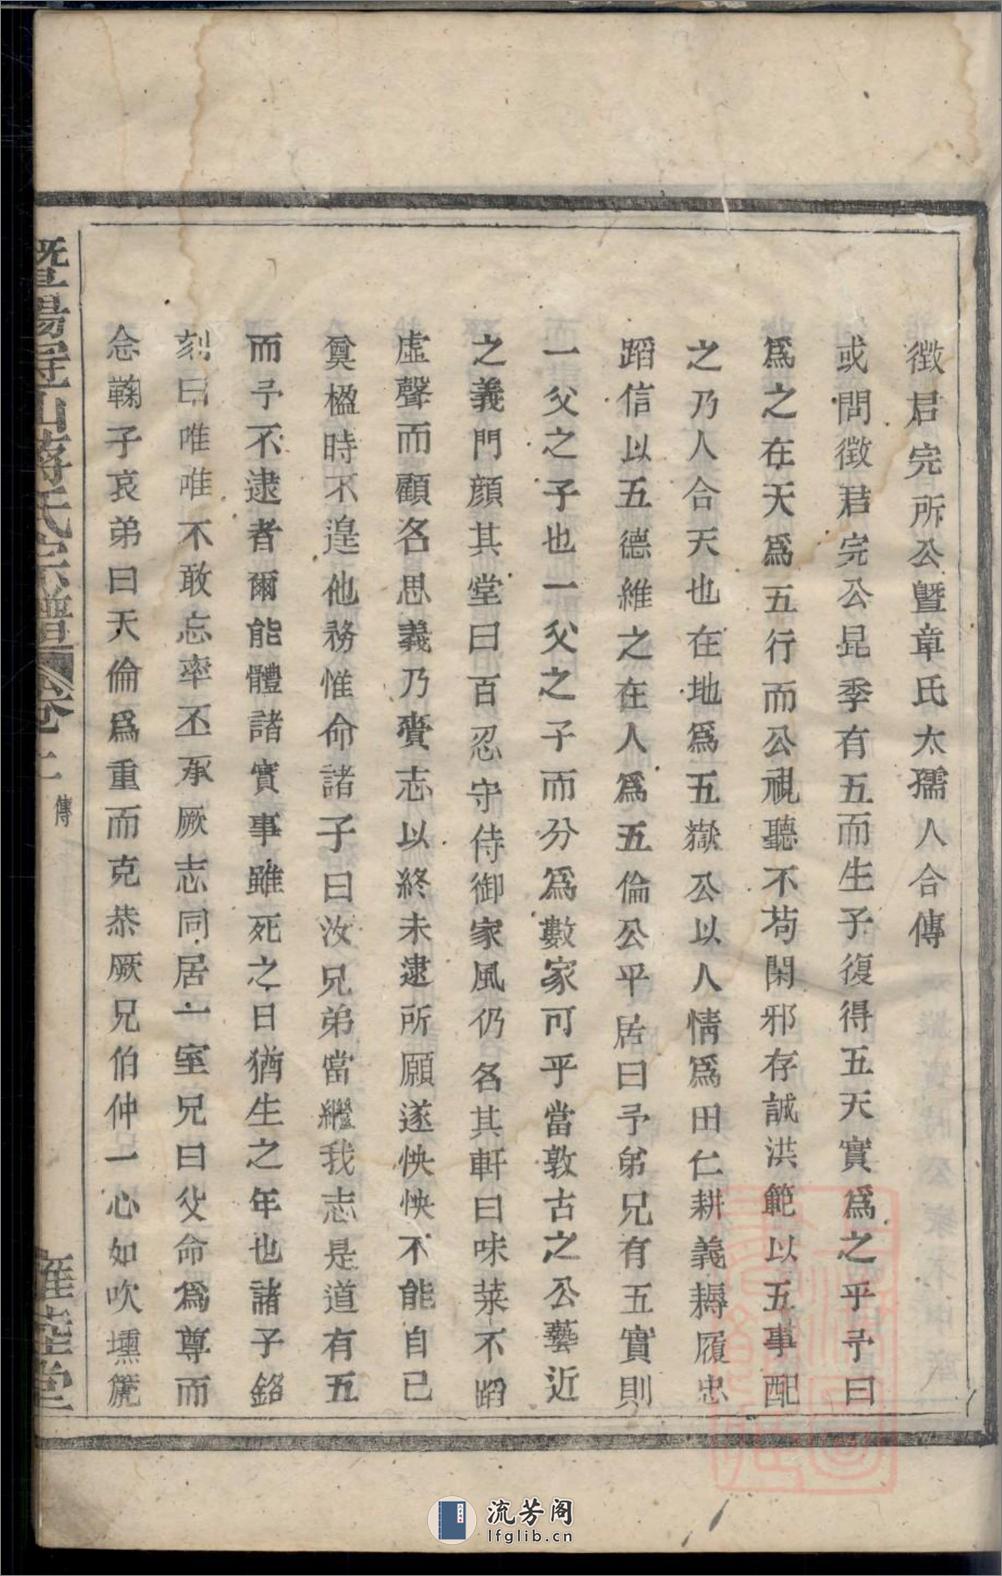 徵君完所公暨章氏太孺人合傳
或問徵君完公昆季有五而生子復得五天實爲之乎予曰
爲之在天爲五行而公視聽不苟閑邪存誠洪範以五事配
之乃人合天也在地爲五嶽公以人情爲田仁耕義耨履忠
蹈信以五德維之在人爲五倫公平居曰予弟兄有五實則
一父之子也一父之子而分爲數家可乎當敦古之公藝近
之義門顏其堂曰百忍守侍御家風仍名其軒曰味菜不蹈
虛聲而顧名思義乃賫志以終未逮所願遂怏怏不能自已
奠楹時不遑他務惟命諸子曰汝兄弟當繼我志是道有五
而予不逮者爾能體諸實事雖死之日猶生之年也諸子銘
刻曰唯唯不敢忘率丕承厥志同居一室兄曰父命爲尊而
念鞠子哀弟曰天倫爲重而克恭厥兄伯仲一心如吹壎箎
暨陽冠山蔣氏宗譜 卷 傳 雍睦堂
流芳阁
lfglib.cn